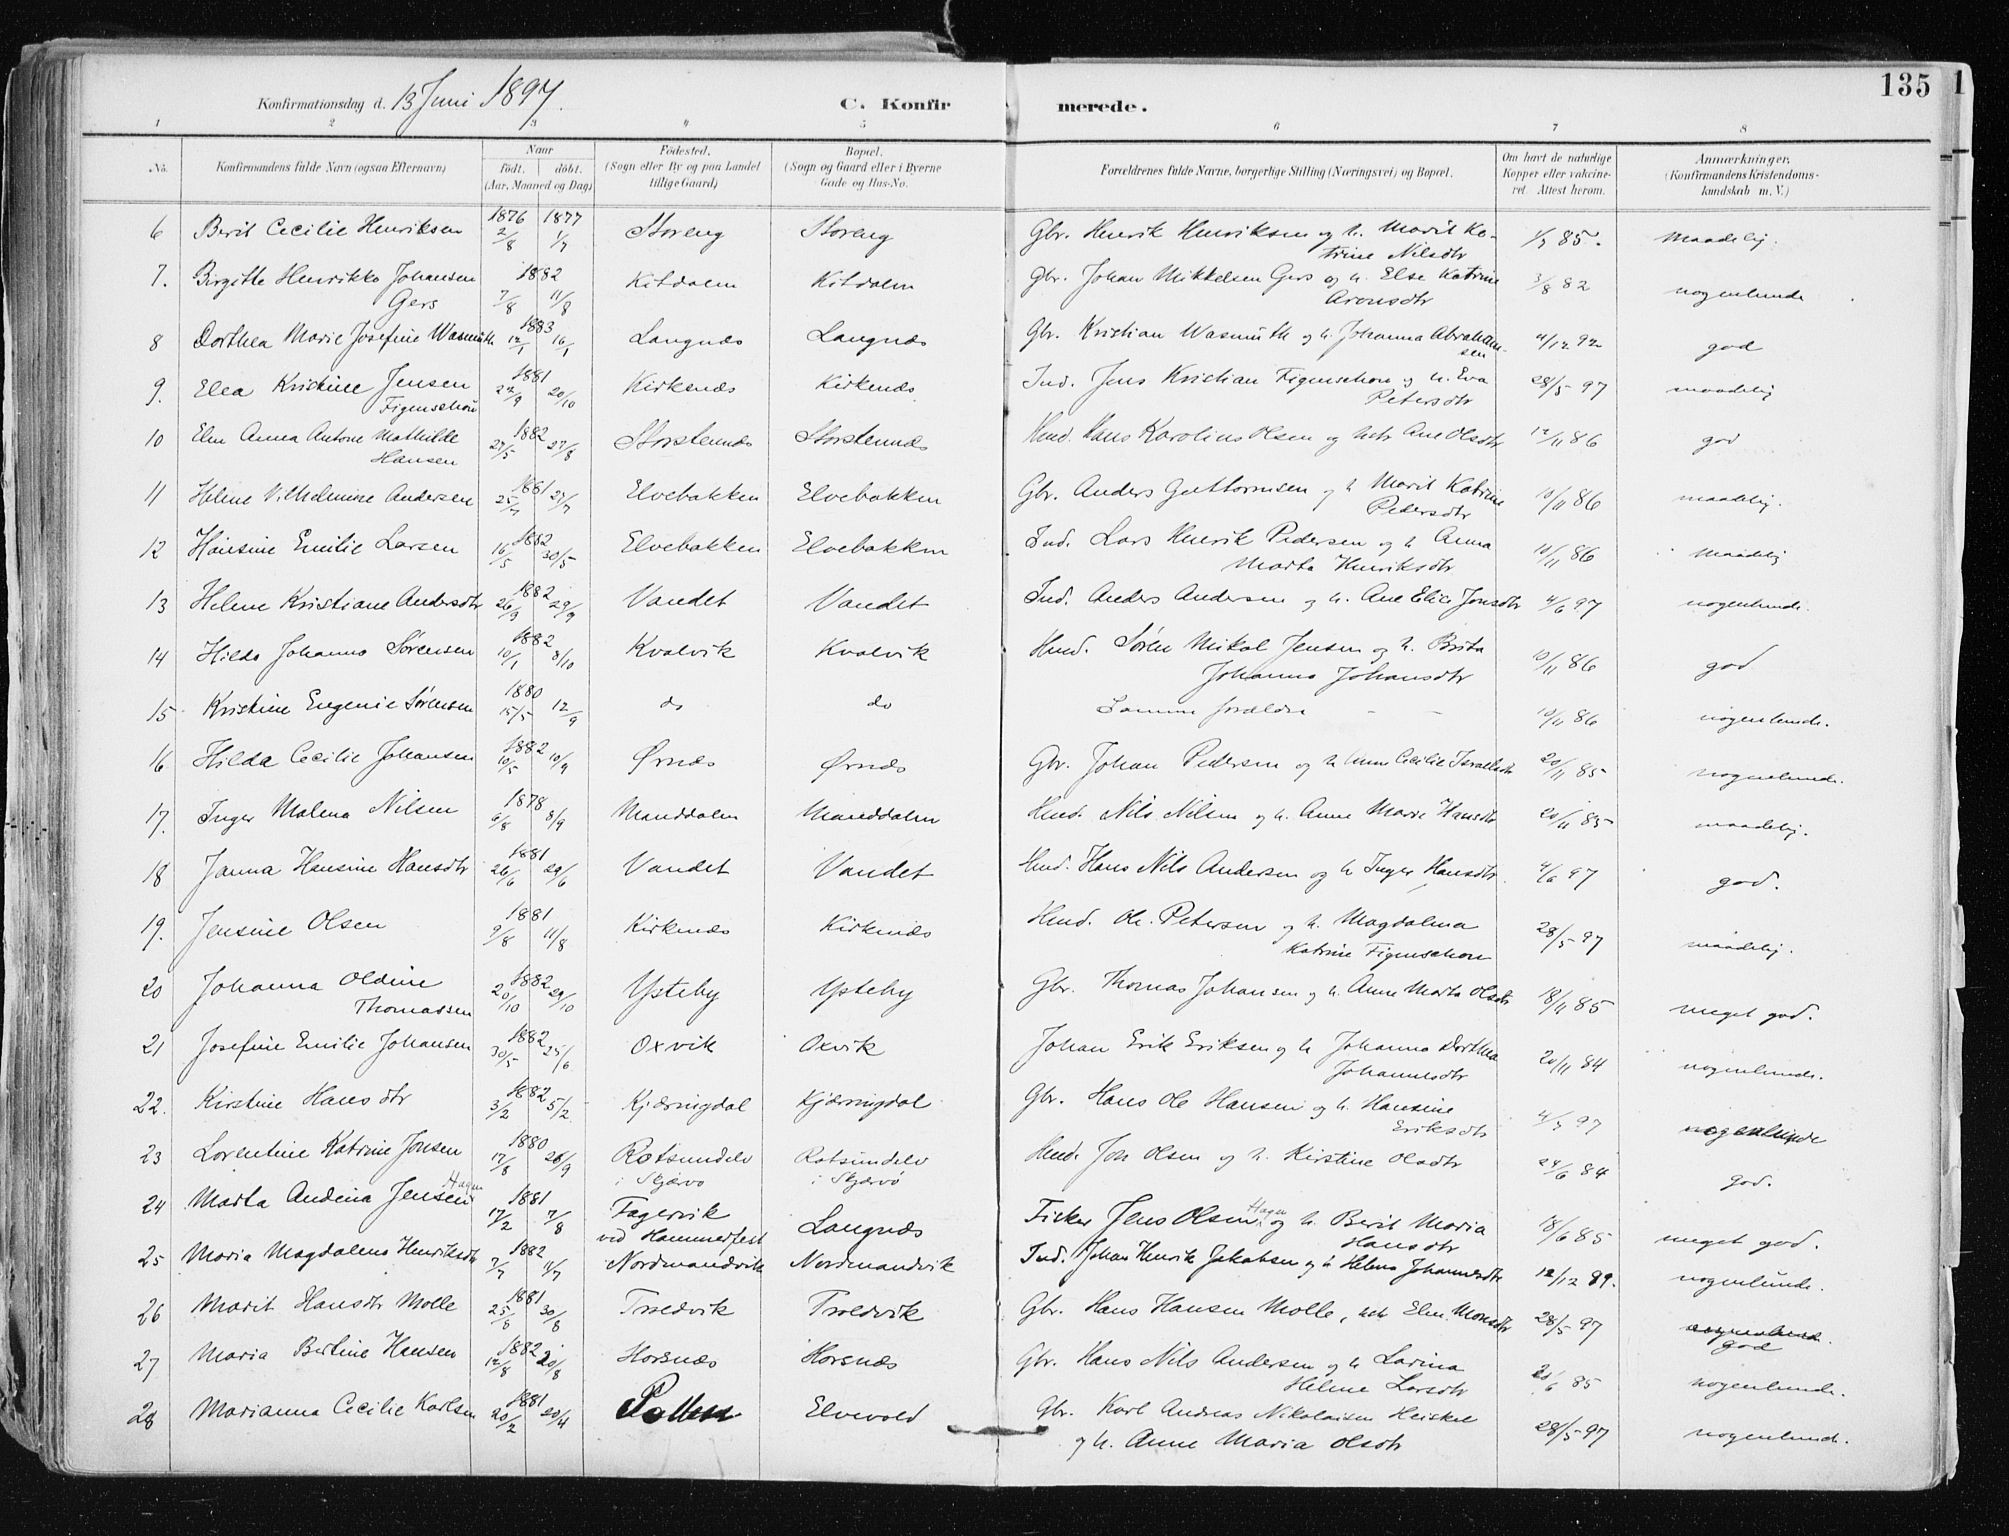 135
Konfirmationsdag d. 13 Juni 1897.
C. Konfirmerede.
1 2 3 4 5 6 7 8
No. Konfirmandens fulde Navn (ogsaa Efternavn) Naar født. døbt. (Aar, Maaned og Dag) Fødested. (Sogn eller By og paa Landet tillige Gaard) Bopæl. (Sogn og Gaard eller i Byerne Gade og Hus-No. Forældrenes fulde Navne, borgerlige Stilling (Næringsvei) og Bopæl. Om havt de naturlige Kopper eller vakcineret. Attest herom. Anmærkninger. (Konfirmandens Kristendomskundskab m. V.)
6 Berit Cecilie Henriksen 1876 2/8 1877 1/7 Storeng Storeng Gbr. Henrik Henriksen og h. Marit Ka-
trine Nilsdtr 1/7 85. Maadelig.
7. Birgitte Henrikke Johansen 1882 Kitdalen Kitdalen Gbr. Johan Mikkelsen Gers og h. Else Katrine 3/8 82 nogenlunde
Gers 7/8 11/8 Aronsdtr
8 Dorthea Marie Josefine Wasmuth 1883 12/1 16/1 Langnæs Langnæs Gbr. Kristian Wasmuth og h. Johanna Abraham-
sen 4/12 92 god
9. Elea Kristine Jensen 1881 22/9 20/10 Kirkenæs Kirkenæs. Ind. Jens Kristian Figenschou og h. Eva 28/5 97 maadelig
Figenschou Petersdtr
10 Elen Anna Antone Mathilde 1882 27/5 27/8 Storstennæs Storstennæs Hmd. Hans Karolius Olsen og htr Ane Olsdtr 12/11 86 god
Hansen
11 Helene Vilhelmine Andersen 1881 25/7 27/7 Elvebakken Elvebakken Gbr. Anders Guttormsen og h Marit Katrine 10/11 86 maadelig.
Pedersdtr
12 Hansine Emilie Larsen 1882 16/5 30/5 Elvebakken Elvebakken Ind. Lars Henrik Pedersen og h Anna 10/11 86 maadelig
Marta Henriksdtr
13 Helene Kristiane Andersdtr 1882 26/9 29/9 Vandet Vandet Ind. Anders Andersen og h. Ane Elise Jonsdtr 4/6 97 nogenlunde.
14 Hilda Johanna Sørensen 1882 10/1 8/10 Kvalvik Kvalvik Hmd. Søren Mikal Jensen og h. Brita 10/11 86 god
Johanna Johansdtr
15 Kristine Eugenie Sørensen 1880 15/5 12/9 do do Samme forældre — — 10/11 86 nogenlunde.
16 Hilda Cecilie Johansen 1882 10/5 10/9 Ørnæs Ørnæs Gbr. Johan Pedersen og h Anne Cecilie Israelsdtr 20/11 85 nogenlunde.
17. Inger Malena Nilsen 1878 6/8 8/9 Manddalen Manddalen Hmd. Nils Nilsen og h. Anne Marie Hansdtr 20/11 85 maadelig.
18 Janna Hansine Hansdtr 1881 26/6 29/6 Vandet Vandet Hmd. Hans Nils Andersen og h Inger Hansdtr. 4/6 97 god.
19. Jensine Olsen 1881 9/8 11/8 Kirkenæs Kirkenæs Hmd. Ole Petersen og h. Magdalena 28/5 97 maadelig.
Katrine Figenschou
20 Johanna Oldine 1882 20/10 29/10 Ysteby Ysteby Gbr. Thomas Johansen og h. Anne Marta Olsdtr 18/11 85 meget god.
Thomassen
21 Josefine Emilie Johansen 1882 30/5 25/6 Oxvik Oxvik Johan Erik Eriksen og h Johanna Dorthea 20/11 84 nogenlunde.
Johannesdtr
22. Kirstine Hansdtr 1882 3/2 5/2 Kjærringdal Kjærringdal Gbr. Hans Ole Hansen og h. Hansine 4/7 97 nogenlunde
Eriksdtr
23 Lorentine Katrine Jonsen 1880 17/8 26/9 Rotsundelv Rotsundelv Hmd. Jon Olsen og h. Kirstine Olsdtr 24/6 84 god.
i Skjærvø i Skjærvø
24 Marta Andina Jensen Hagen 1881 17/2 7/8 Fagervik Langnæs Fisker Jens Olsen Hagen og h. Berit Maria 18/6 85 meget god.
ved Hammerfest Hansdtr
25 Maria Magdalena Henriksdtr 1882 2/7 11/7 Nordmandvik Nordmandvik Ind. Johan Henrik Jakobsen og h Helena Johannesdtr 12/12 89. nogenlunde.
26 Marit Hansdtr Molle 1881 25/8 30/8 Troedvik Troedvik Gbr. Hans Hansen Molle, htr Elen Monsdtr 28/5 97 nogenlunde. god
27 Maria Bertine Hansen 1882 12/8 20/8 Horsnæs Horsnæs Gbr. Hans Nils Andersen og h Larina 20/6 85 nogenlunde.
Helene Larsdtr
28 Marianna Cecilie Karlsen 1881 20/2 20/4 Pollen Elvevold Gbr. Karl Andreas Nikolaisen Heiskel 28/5 97 nogenlunde.
og h. Anne Maria Olsdtr